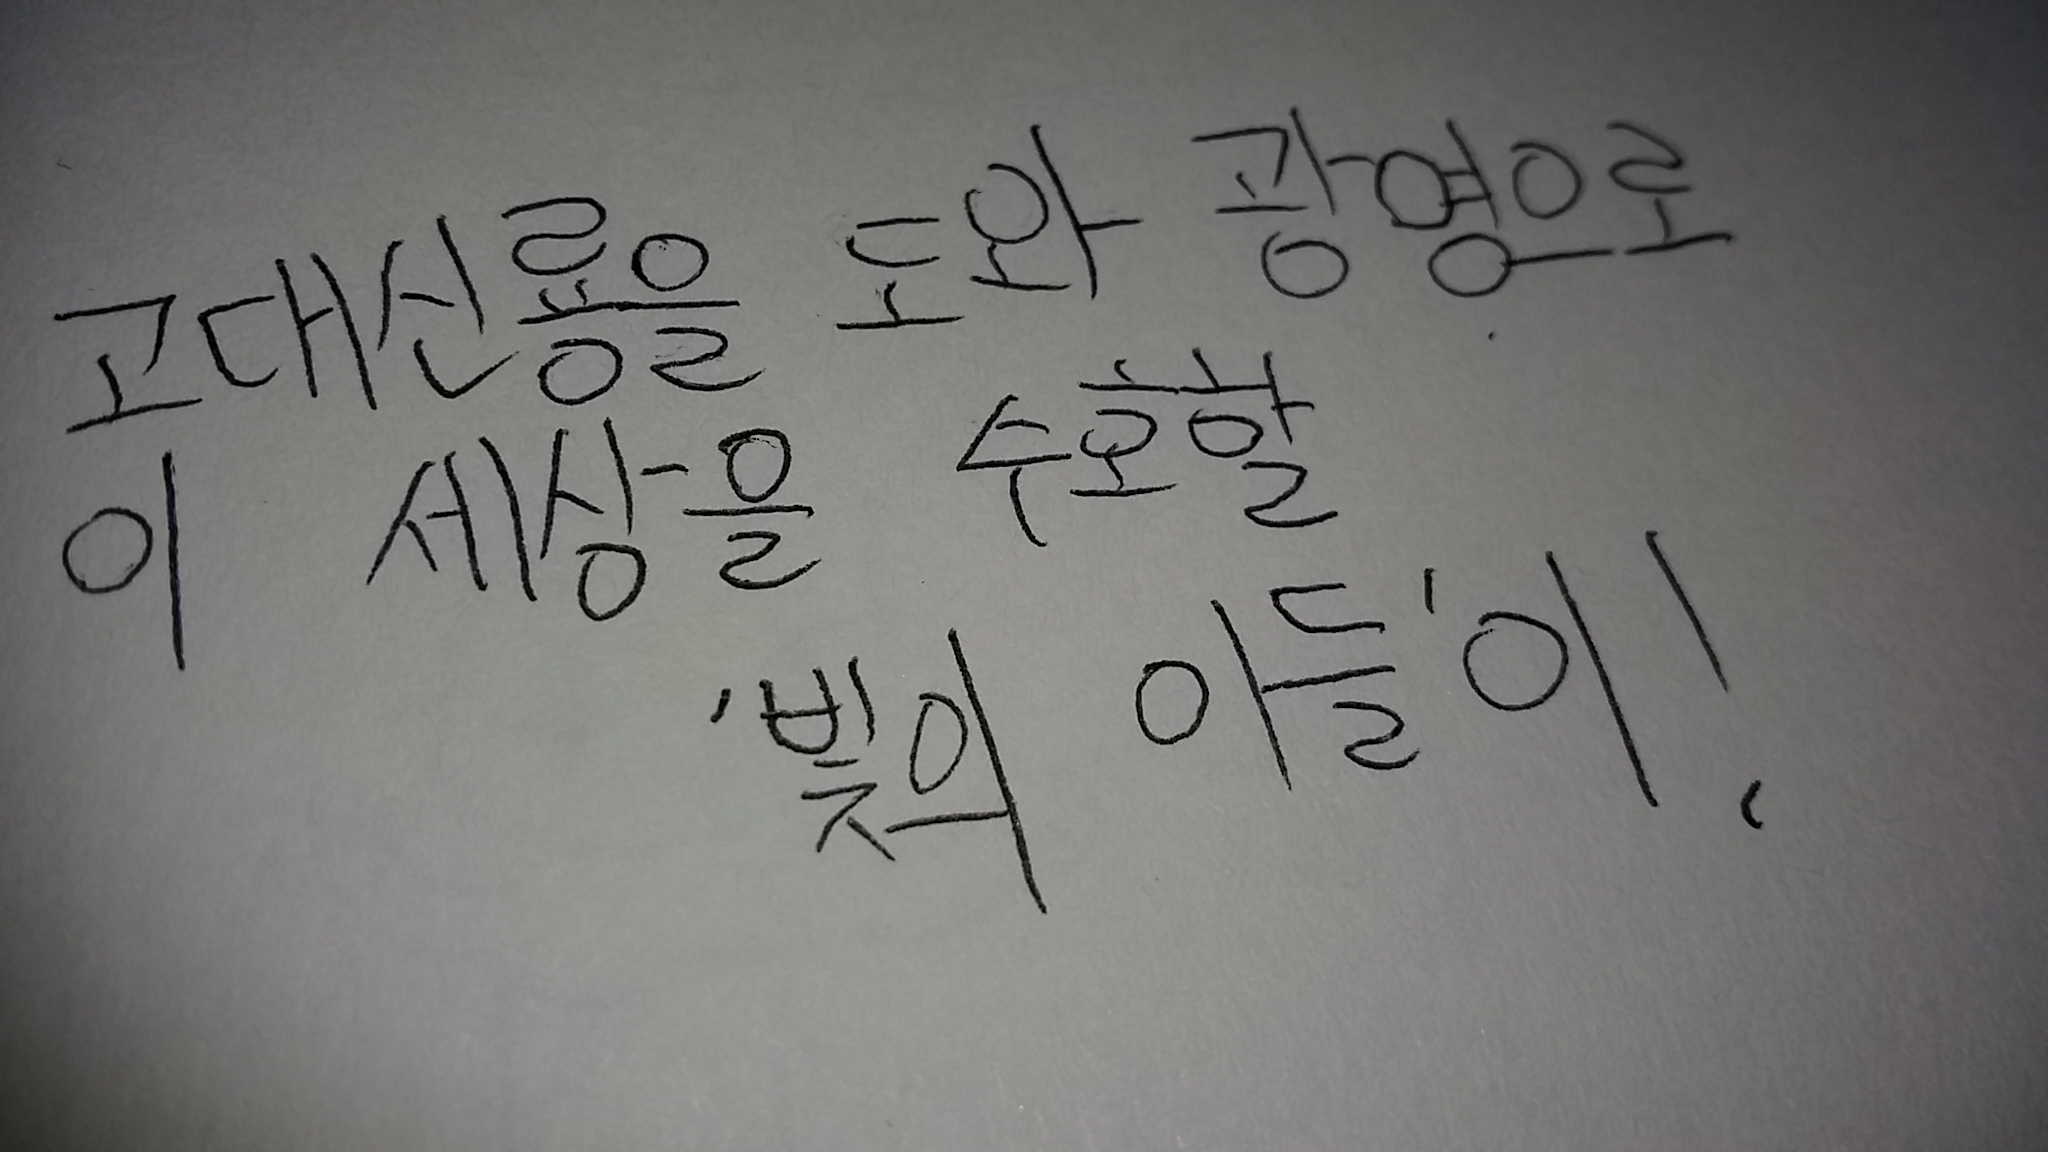 고대신룡을 도와 광영으로
이 세상을 수호할
'빛의 아들'이!